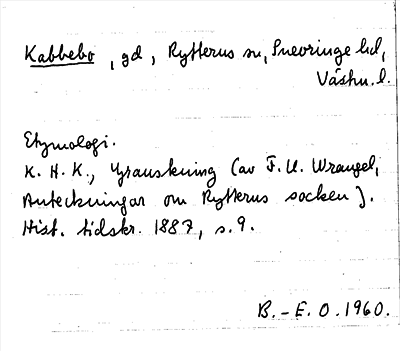 Kabbebo, gd, Rytterns sn, Snevringe hd,
Västm. l.
Etymologi.
K. H. K., Granskning (av F. U. Wrangel,
Anteckningar om Rytterns socken).
Hist. tidskr. 1887, s. 9.
B.-E. O. 1960.